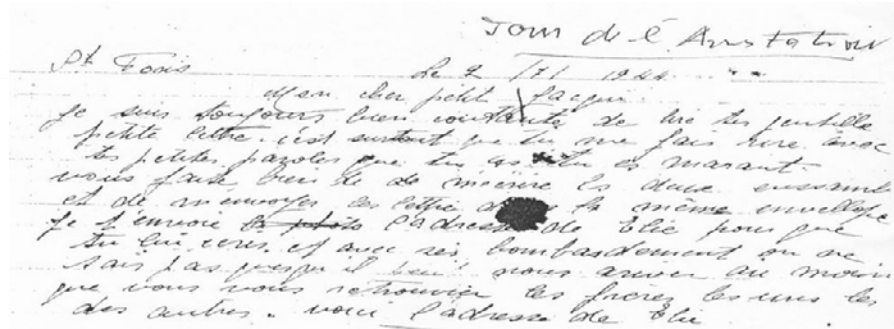 Jour de l'Arrestation
St Fons Le 2 /7/ 1944
Mon cher petit Jacque
Je suis toujours bien contante de lire tes jentille
petite lettre. c'est surtout que tu me fais rire avec
tes petites paroles que tu as tu es marant.
vous faite bien de de les deux ensamble
et de m'envoyer les lettre la même envellope
je t'envoie la photo l'adresse de Elie pour que
tu lui et avec ses bombardement on ne
sais pas qu'il peu nous ariver au moin
que vous vous retrouvier les frères les uns les
des autres. voici l'adresse de Elie